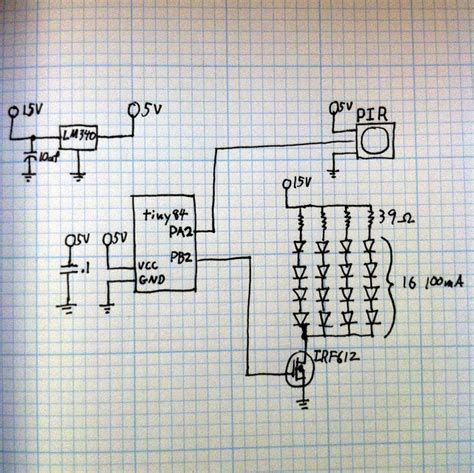 15V
LM340
5V
10uf
5V
PIR
15V
39Ω
tiny84
PA2
PB2
5V
5V
.1
VCC
GND
16 100mA
IRF612